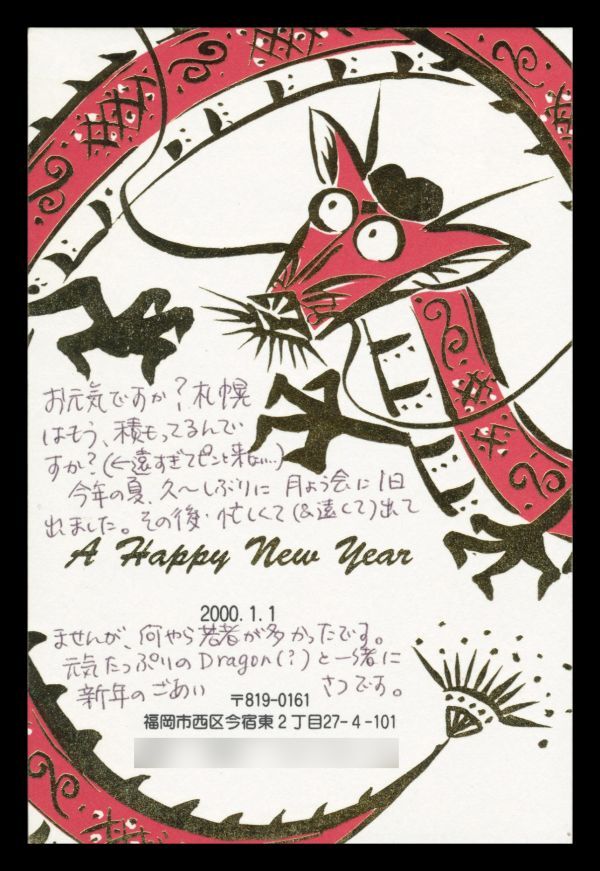 お元気ですか？札幌
はもう、積もってるんで
すか？(←遠すぎてピンと来ない…)
今年の夏、久〜しぶりに 月よう会に1日
出ました。その後、忙しくて(&遠くて)出て
A Happy New Year
2000.1.1
ませんが、何やら若者が多かったです。
元気たっぷりのDragon(?)と一緒に
新年のごあいさつです。
〒819-0161
福岡市西区今宿東2丁目27-4-101